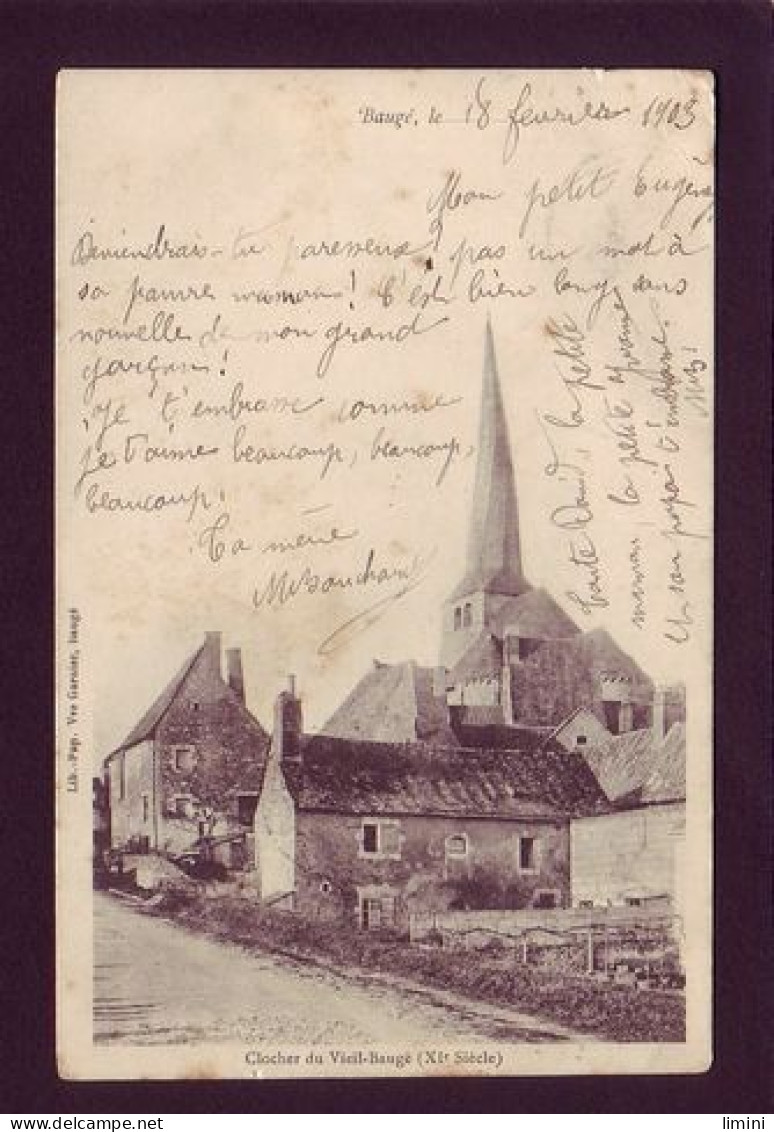 Baugé, le 18 février 1903
Mon petit Eugène
Deviendrais-tu paresseux? pas un mot à
sa pauvre maman! C'est bien long, sans
nouvelle de mon grand
garçon!
Je t'embrasse comme
je t'aime beaucoup, beaucoup,
beaucoup.
Ta mère
M Bouchard
Tante David, la petite
maman, la petite
et son papa t'embrasse.
Lib.-Pap. Vve Garnier, Baugé
Clocher du Vieil-Baugé (XIe Siècle)
limini
www.delcampe.net